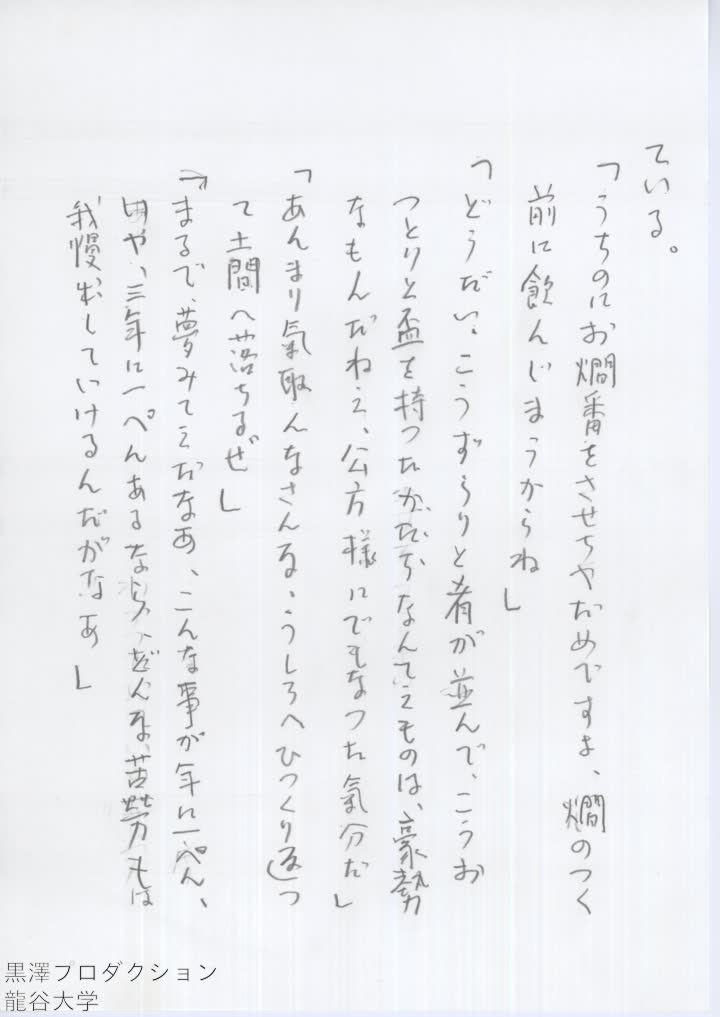 ている。
「うちのにお燗番をさせちやだめですよ、燗のつく
前に飲んじまうからね」
「どうだい、こうずらりと肴が並んで、こうお
つとりと盃を持つたかたちなんてえものは、豪勢
なもんだねえ、公方様にでもなつた気分だ」
「あんまり氣取んなさんな、うしろへひつくり返つ
て土間へ落ちるぜ」
「まるで、夢みてえだなあ、こんな事が年に一ぺん、
や、三年に一ぺんあるなら、どんな苦労も
我慢していけるんだがなあ」
黒澤プロダクション
龍谷大学